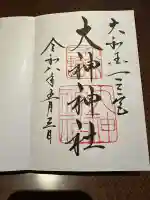 大和国一之宮
大神神社
令和六年五月三日